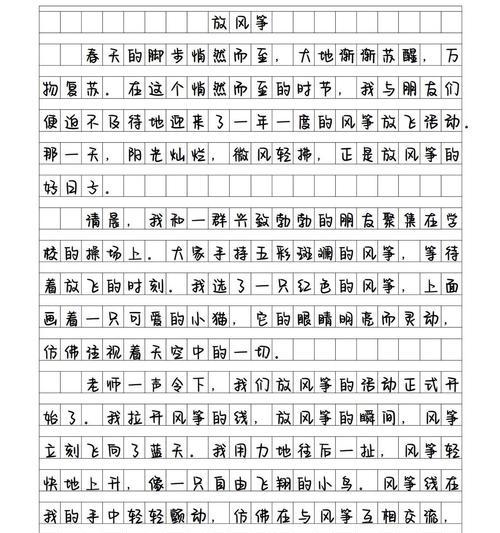 放风筝
春天的脚步悄然而至，大地渐渐苏醒，万
物复苏．在这个悄然而至的时节，我与朋友们
便迫不及待地迎来了一年一度的风筝放飞活动．
那一天，阳光灿烂，微风轻拂，正是放风筝的
好日子．
清晨，我和一群兴致勃勃的朋友聚集在学
校的操场上．大家手持五彩斑斓的风筝，等待
着放飞的时刻．我选了一只红色的风筝，上面
画着一只可爱的小猫，它的眼睛明亮而灵动，
仿佛注视着天空中的一切．
老师一声令下，我们放风筝的活动正式开
始了．我拉开风筝的线，放风筝的瞬间，风筝
立刻飞向了蓝天．我用力地往后一扯，风筝轻
快地上升，像一只自由飞翔的小鸟．风筝线在
我的手中轻轻颤动，仿佛在与风筝互相交流，